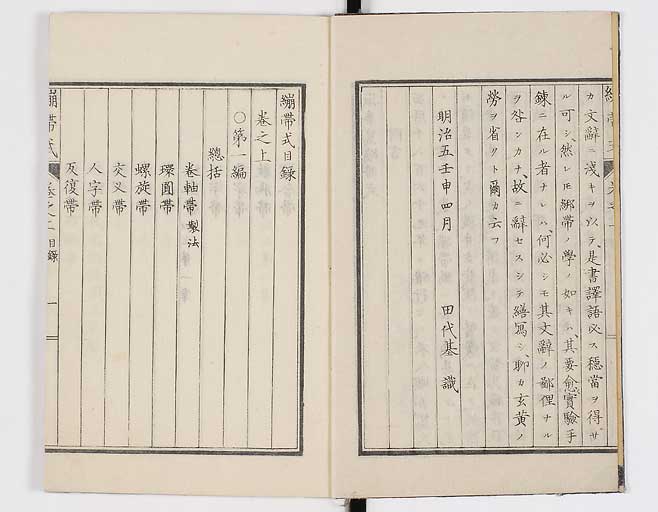 カ文辭ニ淺キヲ以テ、是書譯語必ス穩當ヲ得サ
ル可シ然レ𪜈綳帶ノ學ノ如キハ、其要愈實驗手
鍊ニ在ル者ナレハ、何必シモ其文辭ノ鄙俚ナル
ヲ咎ンカナ、故ニ辭セスシテ繕寫シ、聊カ玄黄ノ
勞ヲ省クト爾カ云フ
明治五壬申四月
田代基識
繃帶式目録
卷之上
○第一編
總括
卷軸帶製法
環圓帶
螺旋帶
交叉帶
人字帶
反復帶
繃帶式
卷之上目録
一